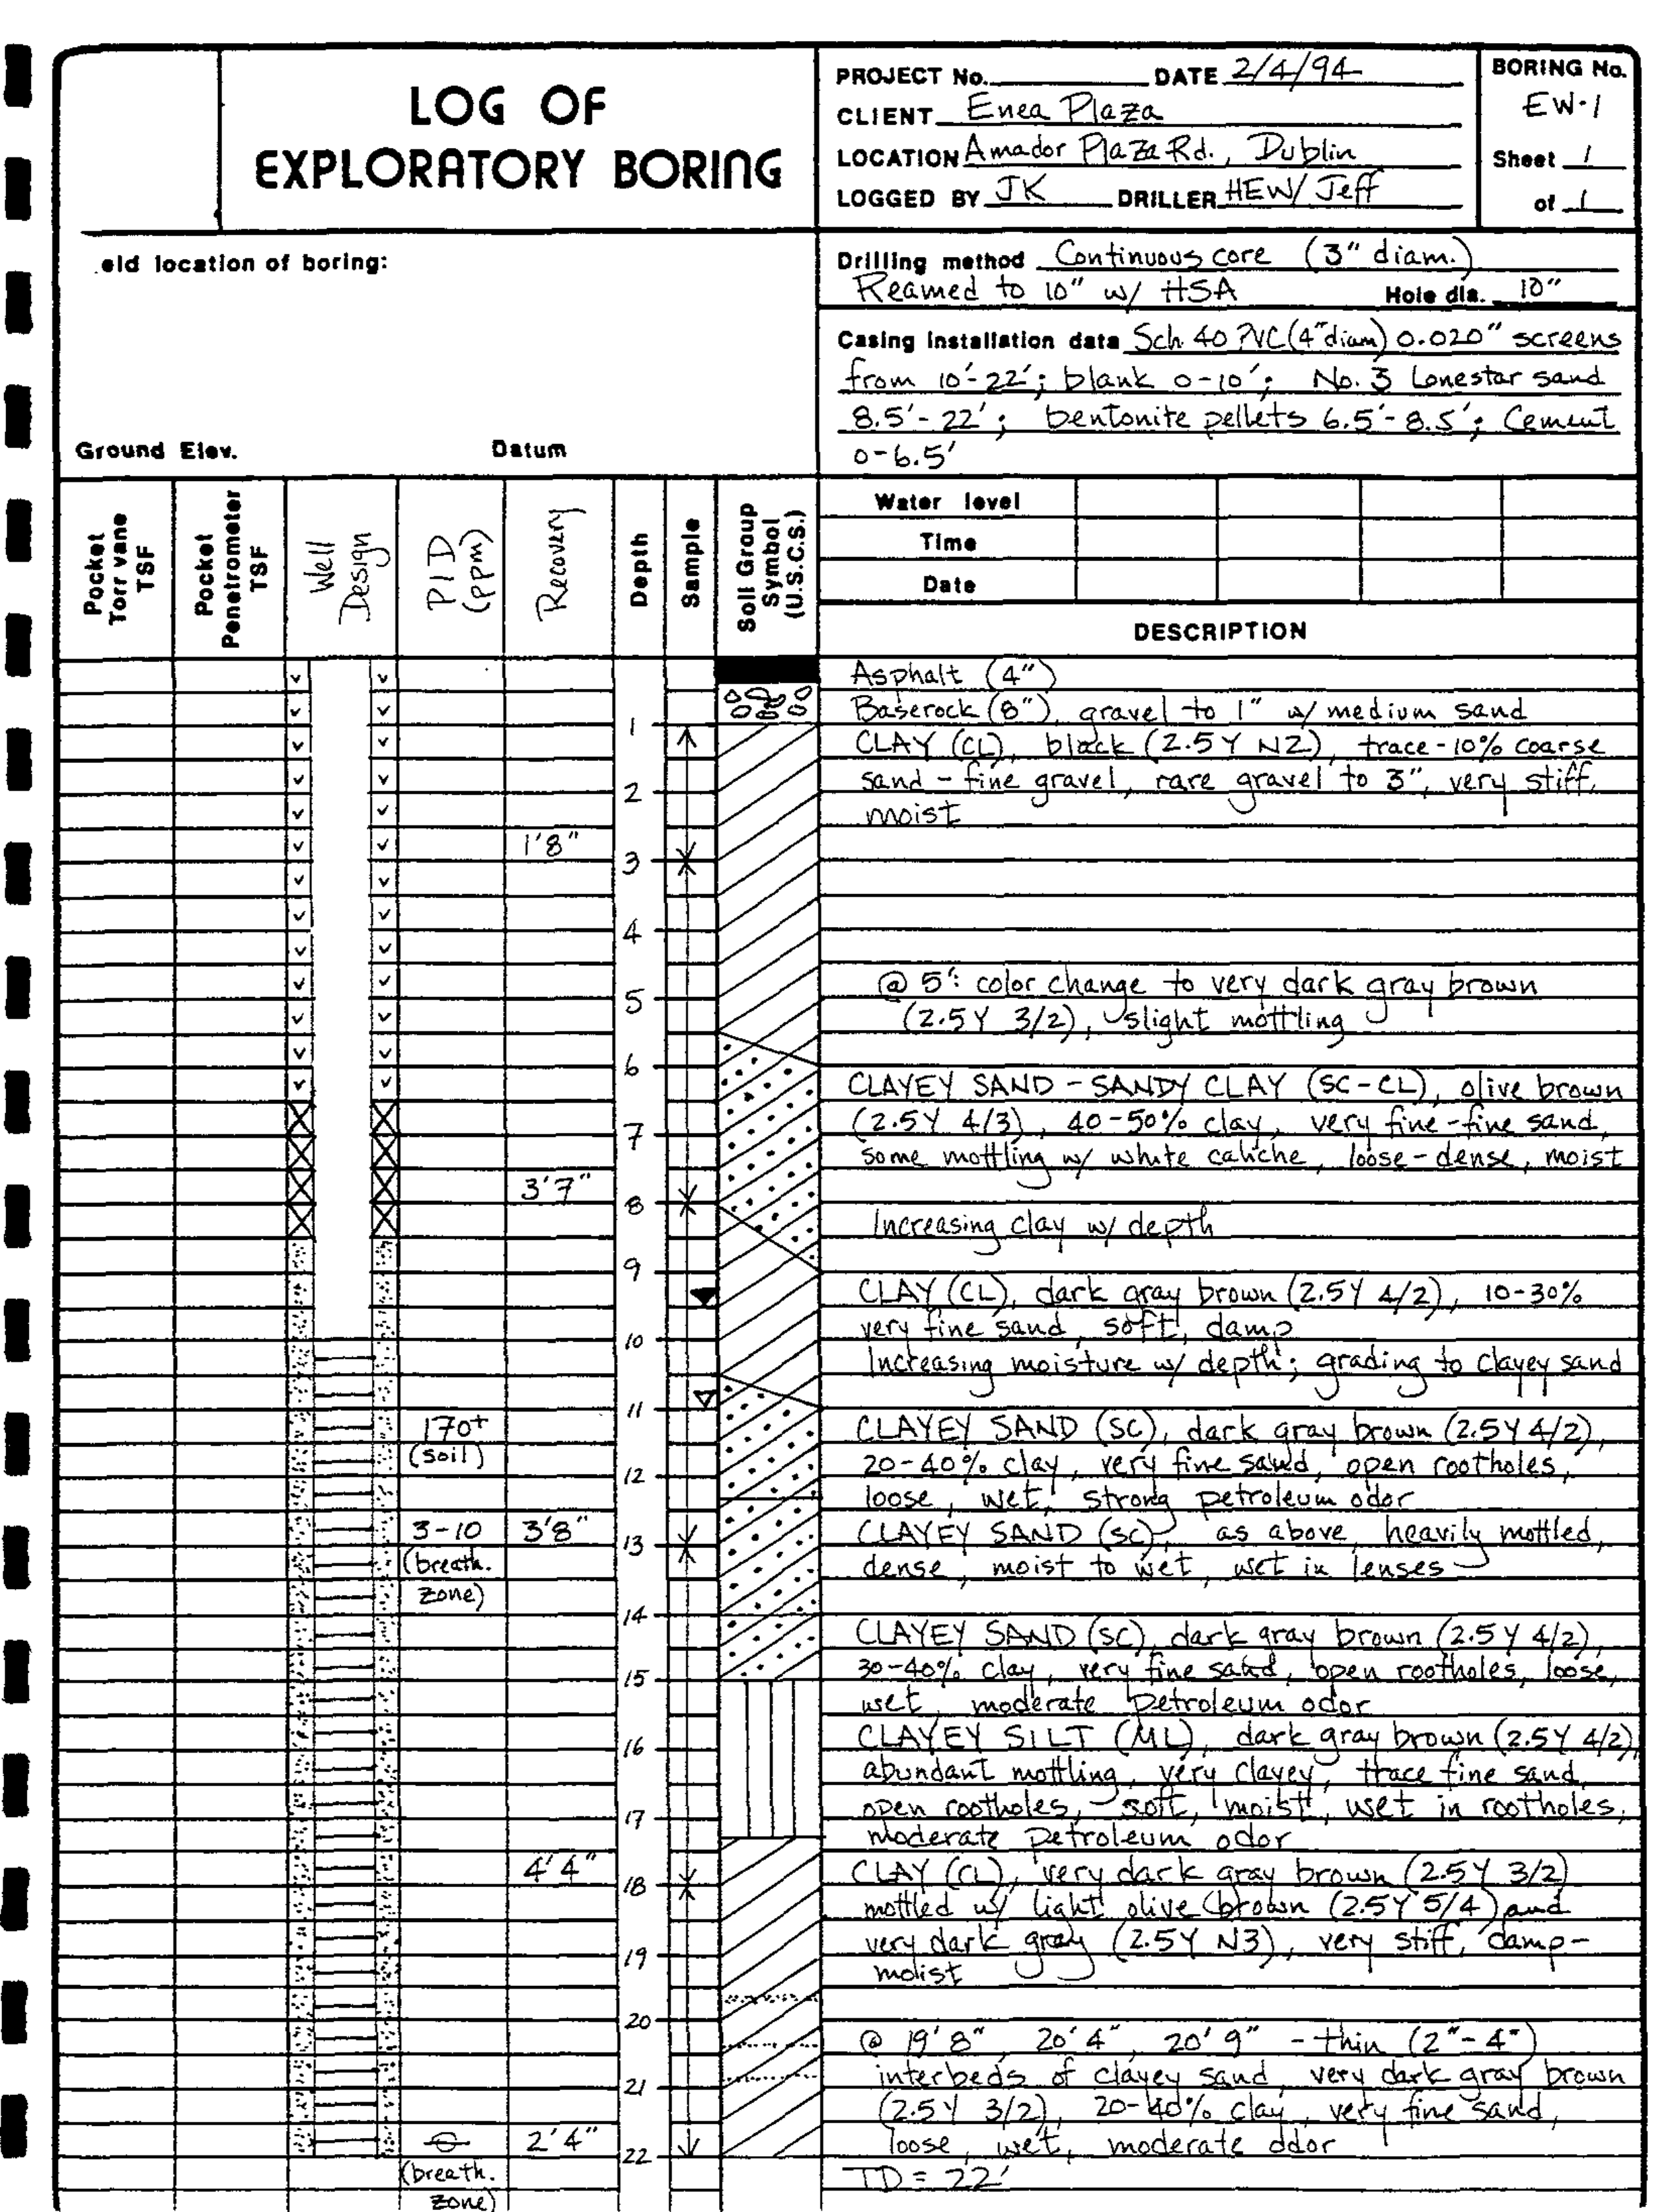 LOG OF
EXPLORATORY BORING
PROJECT No. DATE 2/4/94
CLIENT Enea Plaza
LOCATION Amador Plaza Rd., Dublin
LOGGED BY JK DRILLER HEW/Jeff
BORING No.
EW-1
Sheet 1
of 1
eld location of boring:
Ground Elev. Datum
Drilling method Continuous core (3" diam.)
Reamed to 10" w/ HSA Hole dia. 10"
Casing installation data Sch. 40 PVC (4" diam) 0.020" screens
from 10'-22'; blank 0-10'; No. 3 Lonestar sand
8.5'-22'; bentonite pellets 6.5'-8.5'; Cement
0-6.5'
Pocket Torr vane TSF
Pocket Penetrometer TSF
Well Design
PID (ppm)
Recovery
Depth
Sample
Soil Group Symbol (U.S.C.S.)
Water level
Time
Date
DESCRIPTION
Asphalt (4")
Baserock (8"), gravel to 1" w/ medium sand
1
CLAY (CL), black (2.5Y N2), trace-10% coarse
sand - fine gravel, rare gravel to 3", very stiff,
2
moist
1'8"
3
4
@ 5': color change to very dark gray brown
5
(2.5Y 3/2), slight mottling
6
CLAYEY SAND - SANDY CLAY (SC-CL), olive brown
(2.5Y 4/3), 40-50% clay, very fine-fine sand,
7
some mottling w/ white caliche, loose-dense, moist
3'7"
8
Increasing clay w/ depth
9
CLAY (CL), dark gray brown (2.5Y 4/2), 10-30%
very fine sand, soft, damp
10
Increasing moisture w/ depth; grading to clayey sand
11
170+
(soil)
CLAYEY SAND (SC), dark gray brown (2.5Y 4/2),
20-40% clay, very fine sand, open rootholes,
12
loose, wet, strong petroleum odor
3-10
(breath.
zone)
3'8"
13
CLAYEY SAND (SC), as above, heavily mottled,
dense, moist to wet, wet in lenses
14
CLAYEY SAND (SC), dark gray brown (2.5Y 4/2),
30-40% clay, very fine sand, open rootholes, loose,
15
wet, moderate petroleum odor
CLAYEY SILT (ML), dark gray brown (2.5Y 4/2),
16
abundant mottling, very clayey, trace fine sand,
open rootholes, soft, moist, wet in rootholes,
17
moderate petroleum odor
4'4"
18
CLAY (CL), very dark gray brown (2.5Y 3/2)
mottled w/ light olive brown (2.5Y 5/4) and
very dark gray (2.5Y N3), very stiff, damp-
19
moist
20
@ 19'8", 20'4", 20'9" - thin (2"-4")
interbeds of clayey sand, very dark gray brown
21
(2.5Y 3/2), 20-40% clay, very fine sand,
loose, wet, moderate odor
2'4"
22
0
(breath.
zone)
TD = 22'